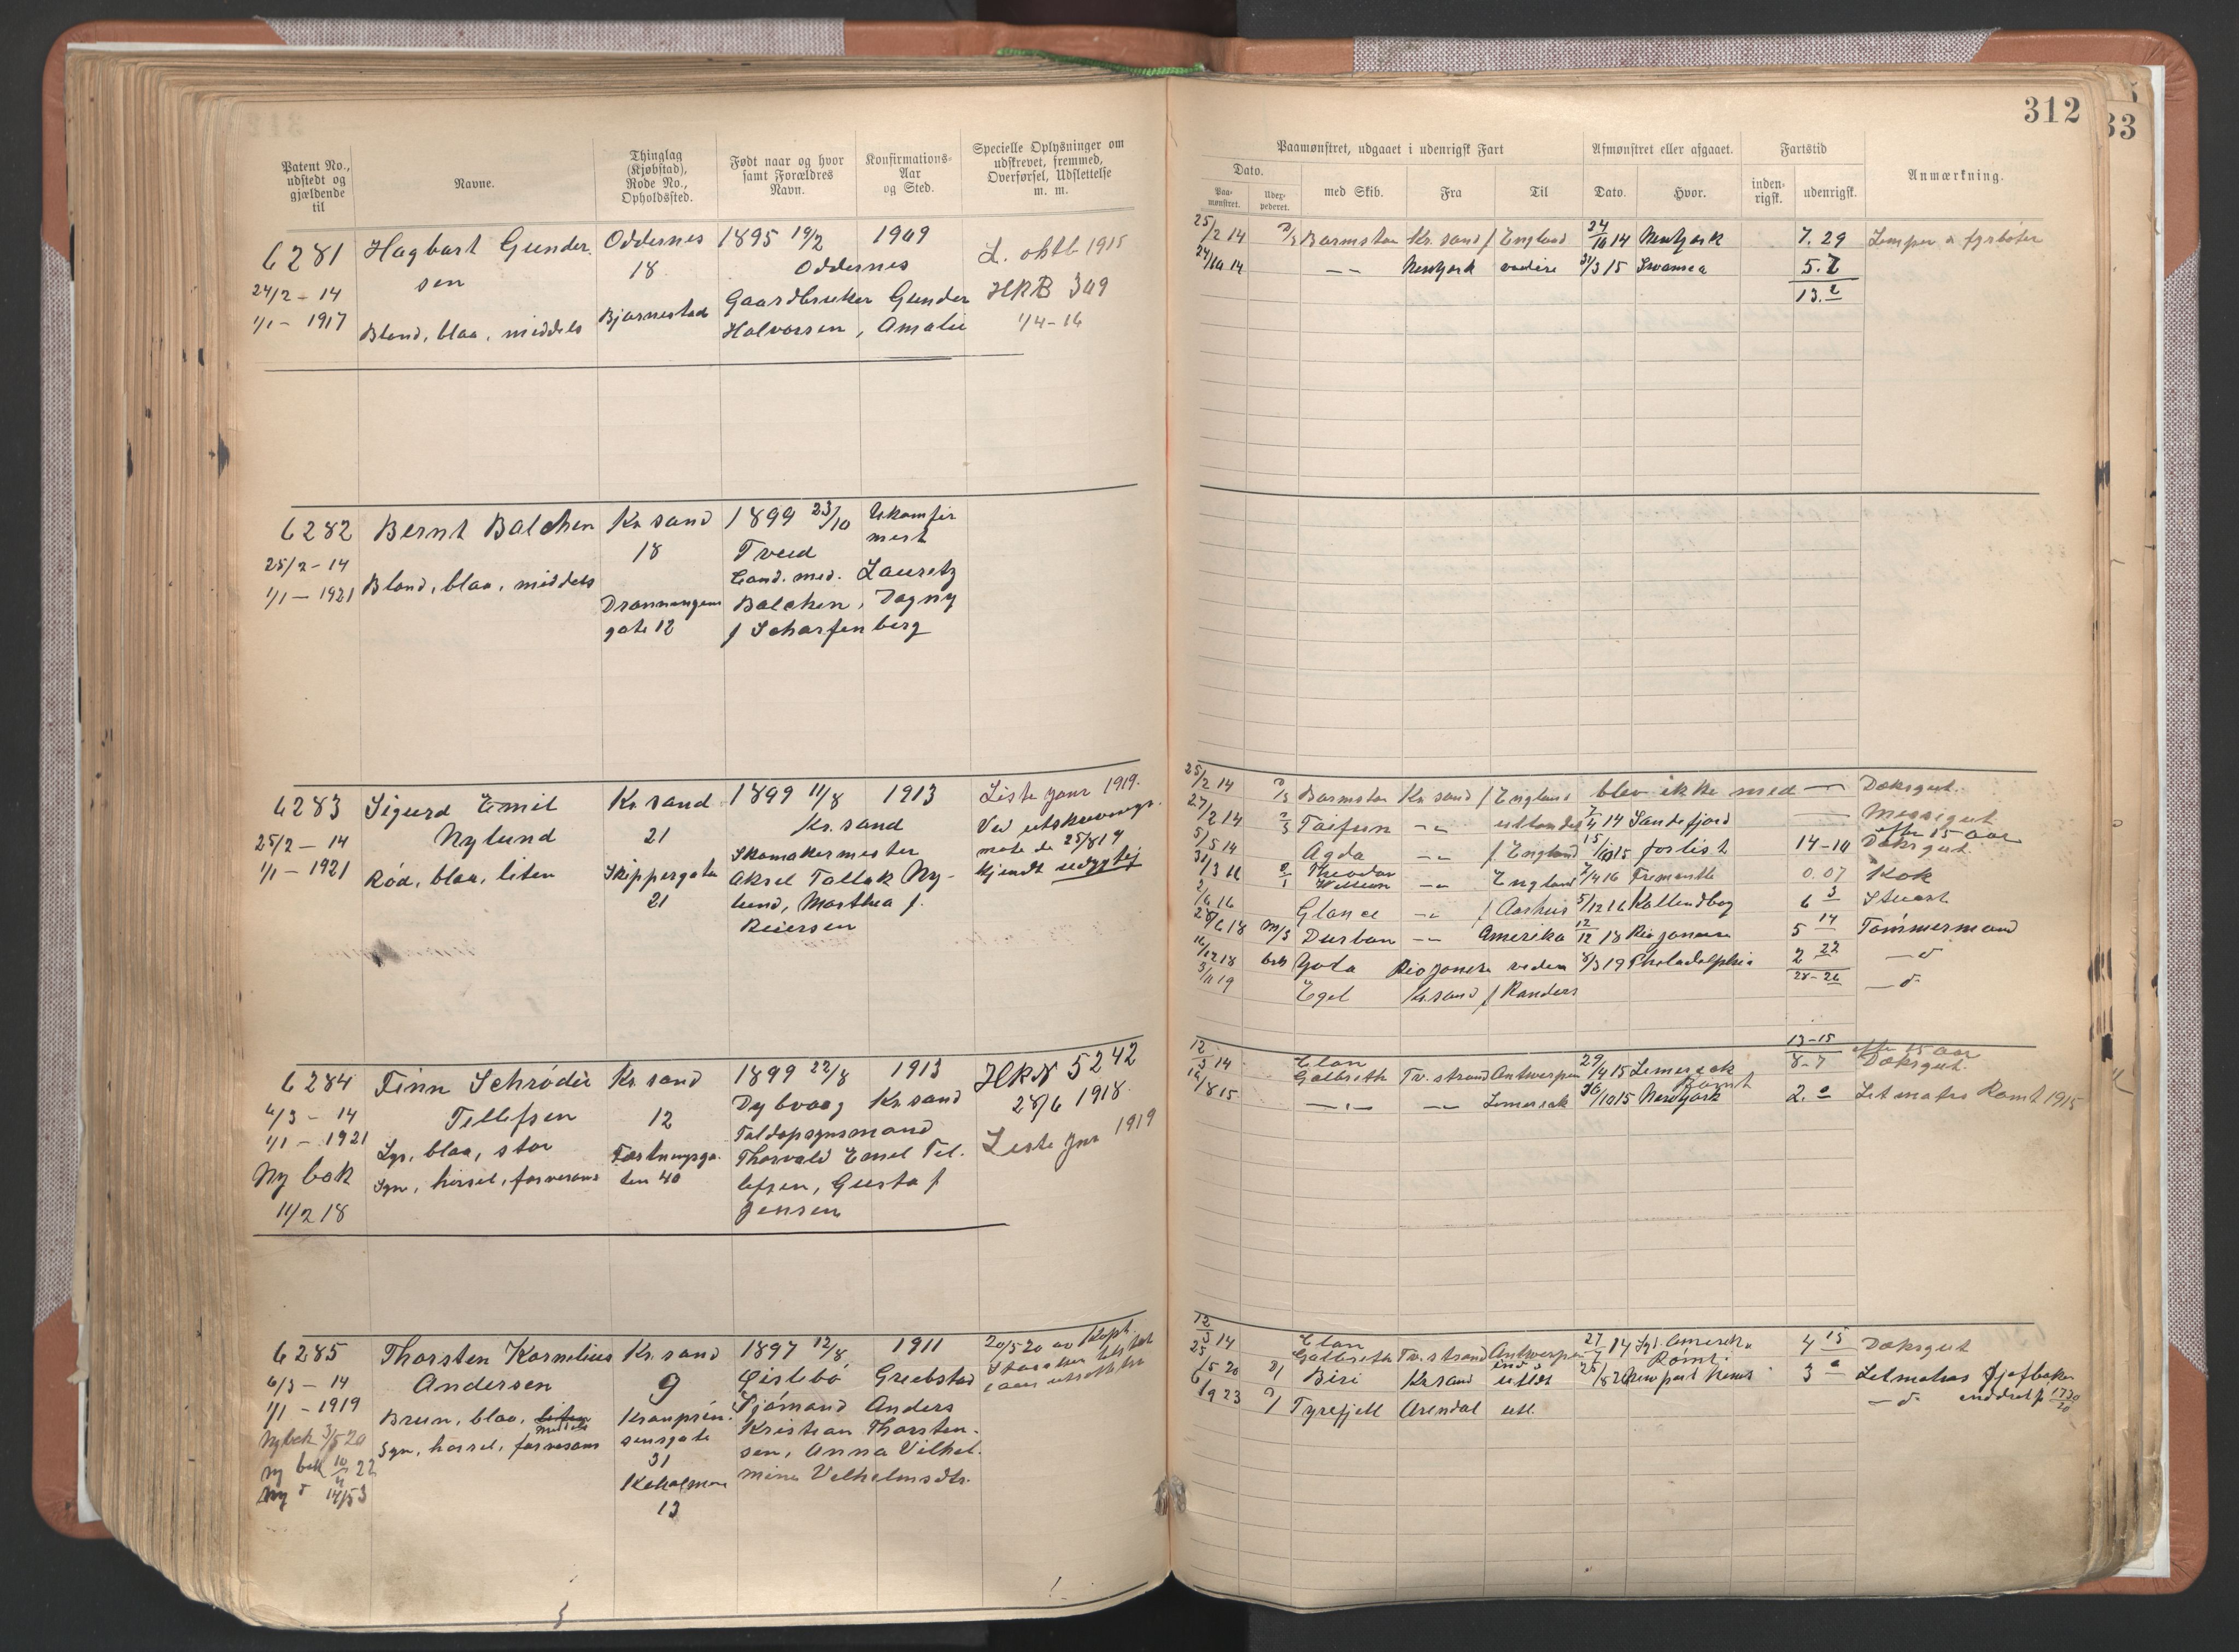 312
33
Patent No., udstedt og gjældende til
Navne.
Thinglag (Kjøbstad), Rode No., Opholdssted.
Født naar og hvor samt Forældres Navn.
Konfirmations-Aar og Sted.
Specielle Oplysninger om udskrevet, fremmed, Overførsel, Udslettelse m. m.
Paamønstret, udgaaet i udenrigsk Fart
Afmønstret eller afgaaet.
Fartstid
Anmærkning.
Dato.
Paa-mønstret.
Udex-pederet.
med Skib.
Fra
Til
Dato.
Hvor.
inden-rigsk.
udenrigsk.
6281 Hagbart Gunder- Oddernes 1895 19/2 1909 L. oktb 1915
sen 18 Oddernes
24/2 - 14 Gaardbruker Gunder HRB 309
1/1 - 1917 Blond, blaa, middels Bjørnestad Halvorsen, Amalie 1/4-16
25/2 14 Barmston Kr. sand f England 24/10 14 NewYork 7.29 Lemper o fyrbøter
24/10 14 -"- NewYork videre 31/3 15 Swansea 5.7
13.2
6282 Bernt Balchen Kr. sand 1899 23/10 Ukonfir
18 Tveid mert
25/2 - 14 Cand. med. Lauretz
1/1 - 1921 Blond, blaa, middels Dronningens Balchen, Dagny
gate 12 f Scharfenberg
6283 Sigurd Emil Kr. sand 1899 11/8 1913 Liste Janr 1919.
Nylund 21 Kr. sand Ved utskrivnings-
25/2 - 14 Skomakermester møte de 25/8 19
1/1 - 1921 Rød, blaa, liten Skippergaten Aksel Tallak Ny- kjendt udygtig
21 lund, Marthea f.
Reiersen
25/2 14 Barmston Kr. sand f England blev ikke med — Dæksgut.
27/2 14 Taifun -"- utlandet 7/4 14 Sandefjord — Messegut
efter 15 aar
5/5 14 Agda -"- f England 15/10 15 forlist 14-10 Dæksgut.
31/3 16 Theodor William -"- England 7/4 16 Fremantle 0.07 Kok
Glance -"- f Aarhus 5/12 16 Kallundborg 6 3 Stuert
28/6 18 m/s Durban -"- Amerika 12/12 18 Rio Janeiro 5 14 Tømmermand
16/12 18 bk Gota Rio Janeiro videre 8/3 19 Philadelphia 2 22 — d
28-26
3/11 19 Egel Kr. sand f Randers — d
6284 Finn Schrøder Kr. sand 1899 22/8 1913 HRN 5242
Tellefsen 12 Dybvaag Kr. sand 28/6 1918.
6/3 - 14 Toldopsynsmand Liste Jnr 1919
1/1 - 1921 Lys, blaa, stor Fæstningsga- Thorvald Emil Tel-
Ny bok Syn, hørsel, farvesans ten 40 lefsen, Gusta f
11/2 18 Jensen
13-15
12/3 14 Elon Galbreth Tv. strand Antwerpen 29/4 15 Limerick 8-7 efter 15 aar Dæksgut.
16/8 15 -"- -"- Limerick 16/10 15 NewYork Rømt 2. Letmatros Rømt 1915
6285 Thorsten Kornelius Kr. sand 1897 12/8 1911 20/5 20 av Kapt.
Andersen 9 Øislebø Greibstad
6/3 - 14 Sjømand Anders
1/1 - 1919 Brun, blaa, liten Kronprin- Kristian Thorsten-
middels
Ny bok 3/5 20 Syn, hørsel, farvesans sensgate sen, Anna Vilhel-
ny bok 10/4 22 31 mine Vilhelmsdtr.
Ny d 14/5 3 Kirkholmen
13
12/3 14 Elon Galbreth Tv. strand Antwerpen 27/7 14 Syd Amerika Rømt. 4 15 Dæksgut
25/5 20 Biri Kr. sand utlandet 25/8 20 Newport News 3 Letmatros
6/1 23 Tyrefjell Arendal utl. — d